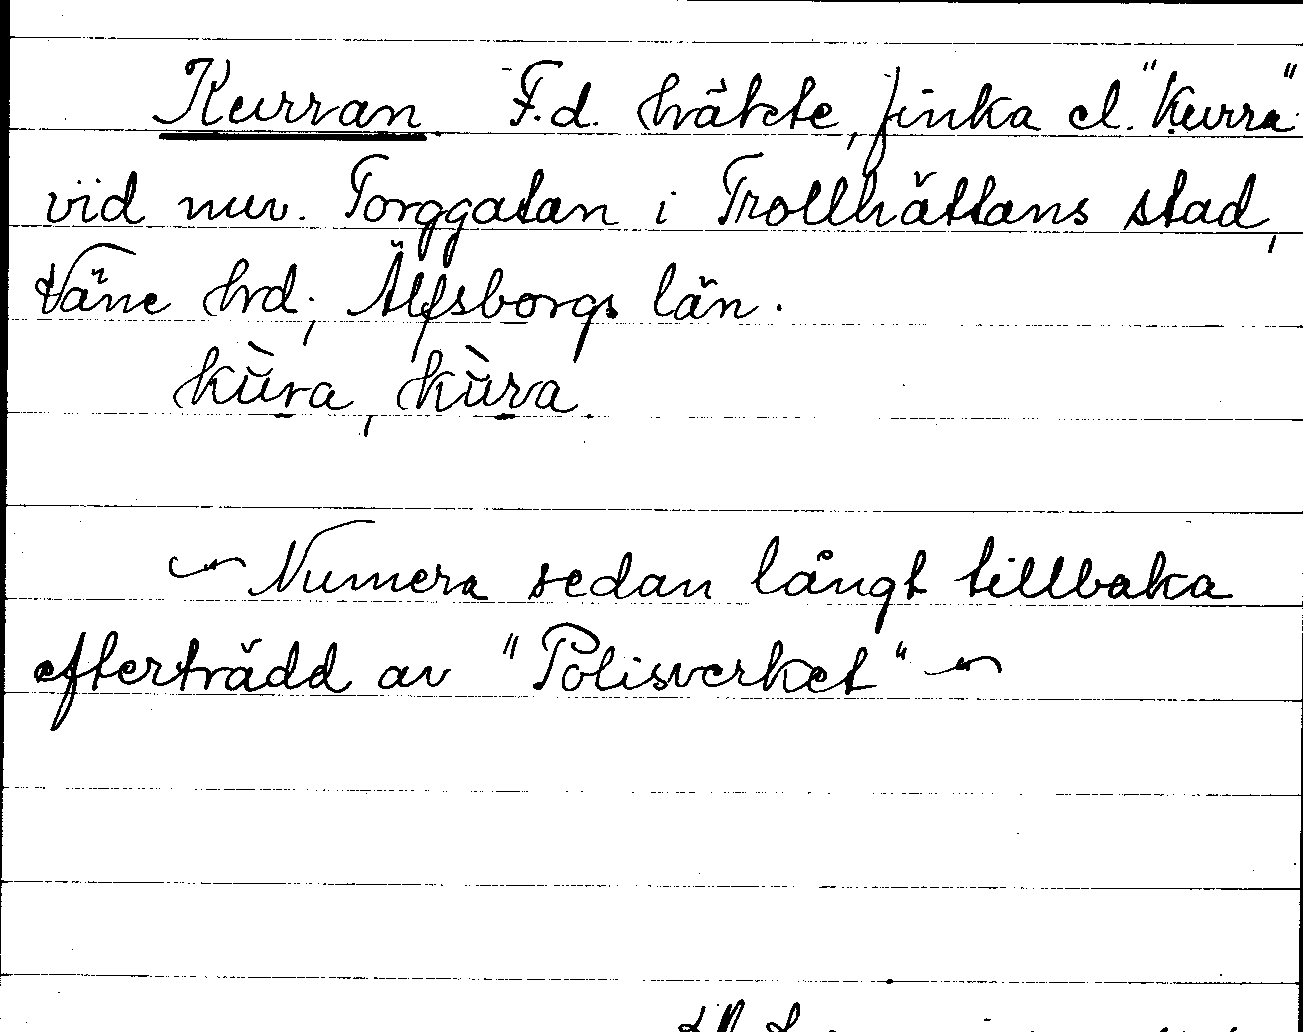 Kurran. F.d. häkte, finka el. "Kurra"
vid nuv. Torggatan i Trollhättans stad,
Väne hrd, Älfsborgs län.
kùra, kùra.
Numera sedan långt tillbaka
efterträdd av "Polisverket"